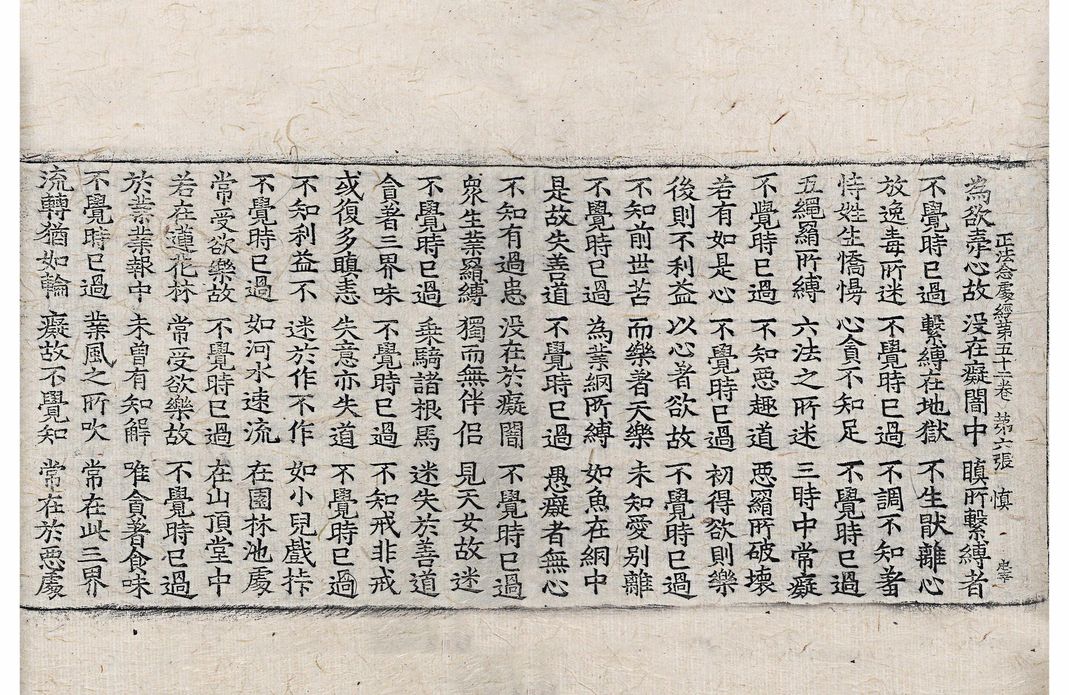 為欲牽心故 没在癡闇中 瞋所繫縛者
正法念處經第五十二卷 第六張 慎
不覺時已過 繫縛在地獄 不生猒離心
放逸毒所迷 不覺時已過 不調不知羞
恃姓生憍慢 心貪不知足 不覺時已過
五縄羂所縛 六法之所迷 三時中常癡
不覺時已過 不知惡趣道 惡羂所破壞
若有如是心 不覺時已過 初得欲則樂
後則不利益 以心著欲故 不覺時已過
不知前世苦 而樂著天樂 未知愛别離
不覺時已過 為業網所縛 如魚在網中
是故失善道 不覺時已過 愚癡者無心
不知有過患 没在於癡闇 不覺時已過
衆生業羂縛 獨而無伴侣 見天女故迷
不覺時已過 乗騎諸根馬 迷失於善道
貪著三界味 不覺時已過 不知戒非戒
或復多瞋恚 失意亦失道 不覺時已過
不知利益不 迷於作不作 如小兒戲
不覺時已過 如河水速流 在園林池處
常受欲樂故 不覺時已過 在山頂堂中
若在蓮花林 常受欲樂故 不覺時已過
於業業報中 未曾有知解 唯貪著食味
不覺時已過 業風之所吹 常在此三界
流轉猶如輪 癡故不覺知 常在於惡處